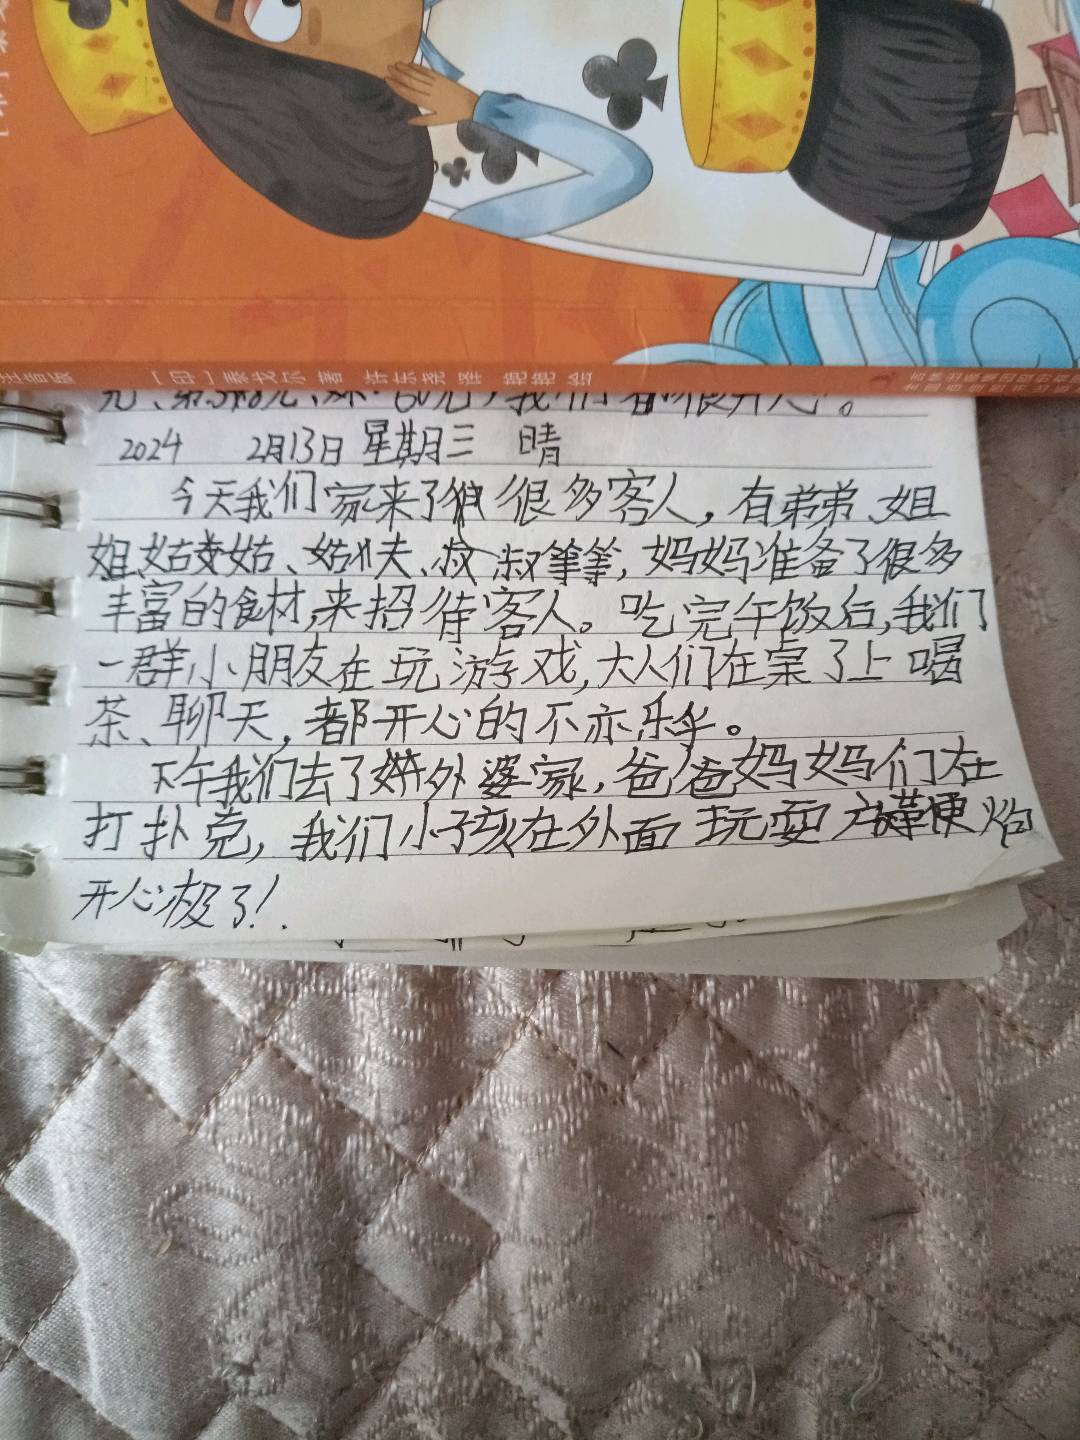 [印]泰戈尔 著 许东尧 译 艳艳 绘
2024 2月13日 星期三 晴
今天我们家来了很多客人，有弟弟、姐
姐、姑姑、姑丈夫、叔叔等等，妈妈准备了很多
丰富的食材，来招待客人。吃完午饭后，我们
一群小朋友在玩游戏，大人们在桌了上喝
茶、聊天，都开心的不亦乐乎。
下午我们去了外婆家，爸爸妈妈们在
打扑克，我们小孩在外面玩耍
开心极了！